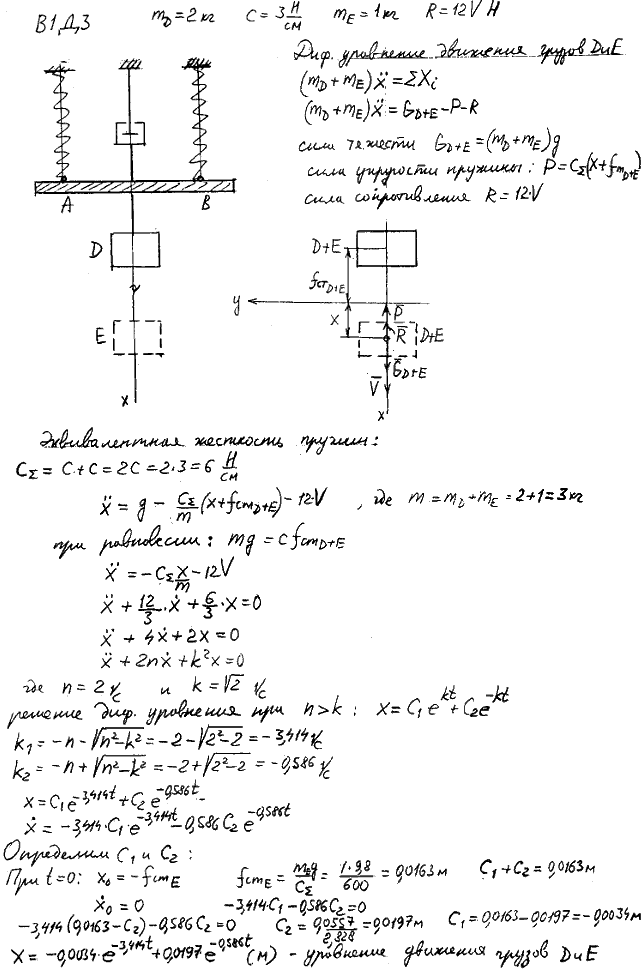 В1,Д,З   m_D = 2 кг   C = 3 Н/см   m_E = 1 кг   R = 12V Н
Диф. уравнение движения грузов D и E
(m_D + m_E)ẍ = ΣX_i
(m_D + m_E)ẍ = G_D+E − P − R
сила тяжести G_D+E = (m_D + m_E)g
сила упругости пружины: P = C_Σ(x + f_ст D+E)
сила сопротивление R = 12·V
A   B
D
E
x
D+E
f_ст D+E
y
x
P̄
R̄
D+E
Ḡ_D+E
V̄
x
Эквивалентная жесткость пружин:
C_Σ = C + C = 2C = 2·3 = 6 Н/см
ẍ = g − C_Σ/m (x + f_ст D+E) − 12·V , где m = m_D + m_E = 2+1 = 3 кг
при равновесии: mg = c f_ст D+E
ẍ = −C_Σ x/m − 12V
ẍ + 12/3·ẋ + 6/3·x = 0
ẍ + 4ẋ + 2x = 0
ẍ + 2nẋ + k²x = 0
где n = 2 1/с   и   k = √2 1/с
решение диф. уравнения при n > k: x = C₁e^kt + C₂e^−kt
k₁ = −n − √(n²−k²) = −2 − √(2²−2) = −3,414 1/с
k₂ = −n + √(n²−k²) = −2 + √(2²−2) = −0,586 1/с
x = C₁e^−3,414t + C₂e^−0,586t
ẋ = −3,414·C₁e^−3,414t − 0,586C₂e^−0,586t
Определим C₁ и C₂:
При t=0: x₀ = −f_ст E   f_ст E = m_E g/C_Σ = 1·9,8/600 = 0,0163 м   C₁ + C₂ = 0,0163 м
ẋ₀ = 0   −3,414·C₁ − 0,586C₂ = 0
−3,414(0,0163 − C₂) − 0,586C₂ = 0   C₂ = 0,0557/2,828 = 0,0197 м   C₁ = 0,0163 − 0,0197 = −0,0034 м
x = −0,0034·e^−3,414t + 0,0197e^−0,586t (м) - уравнение движения грузов D и E